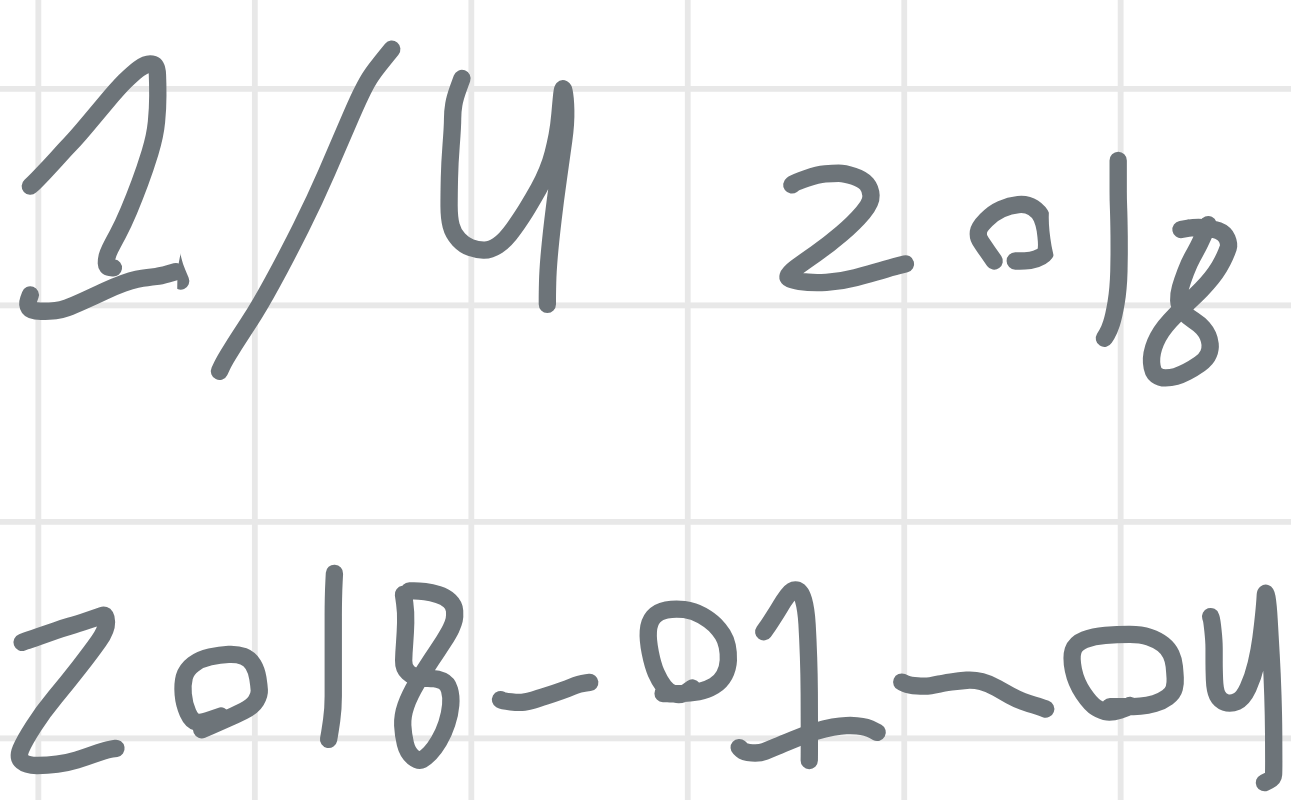 1/4 2018
2018-01-04